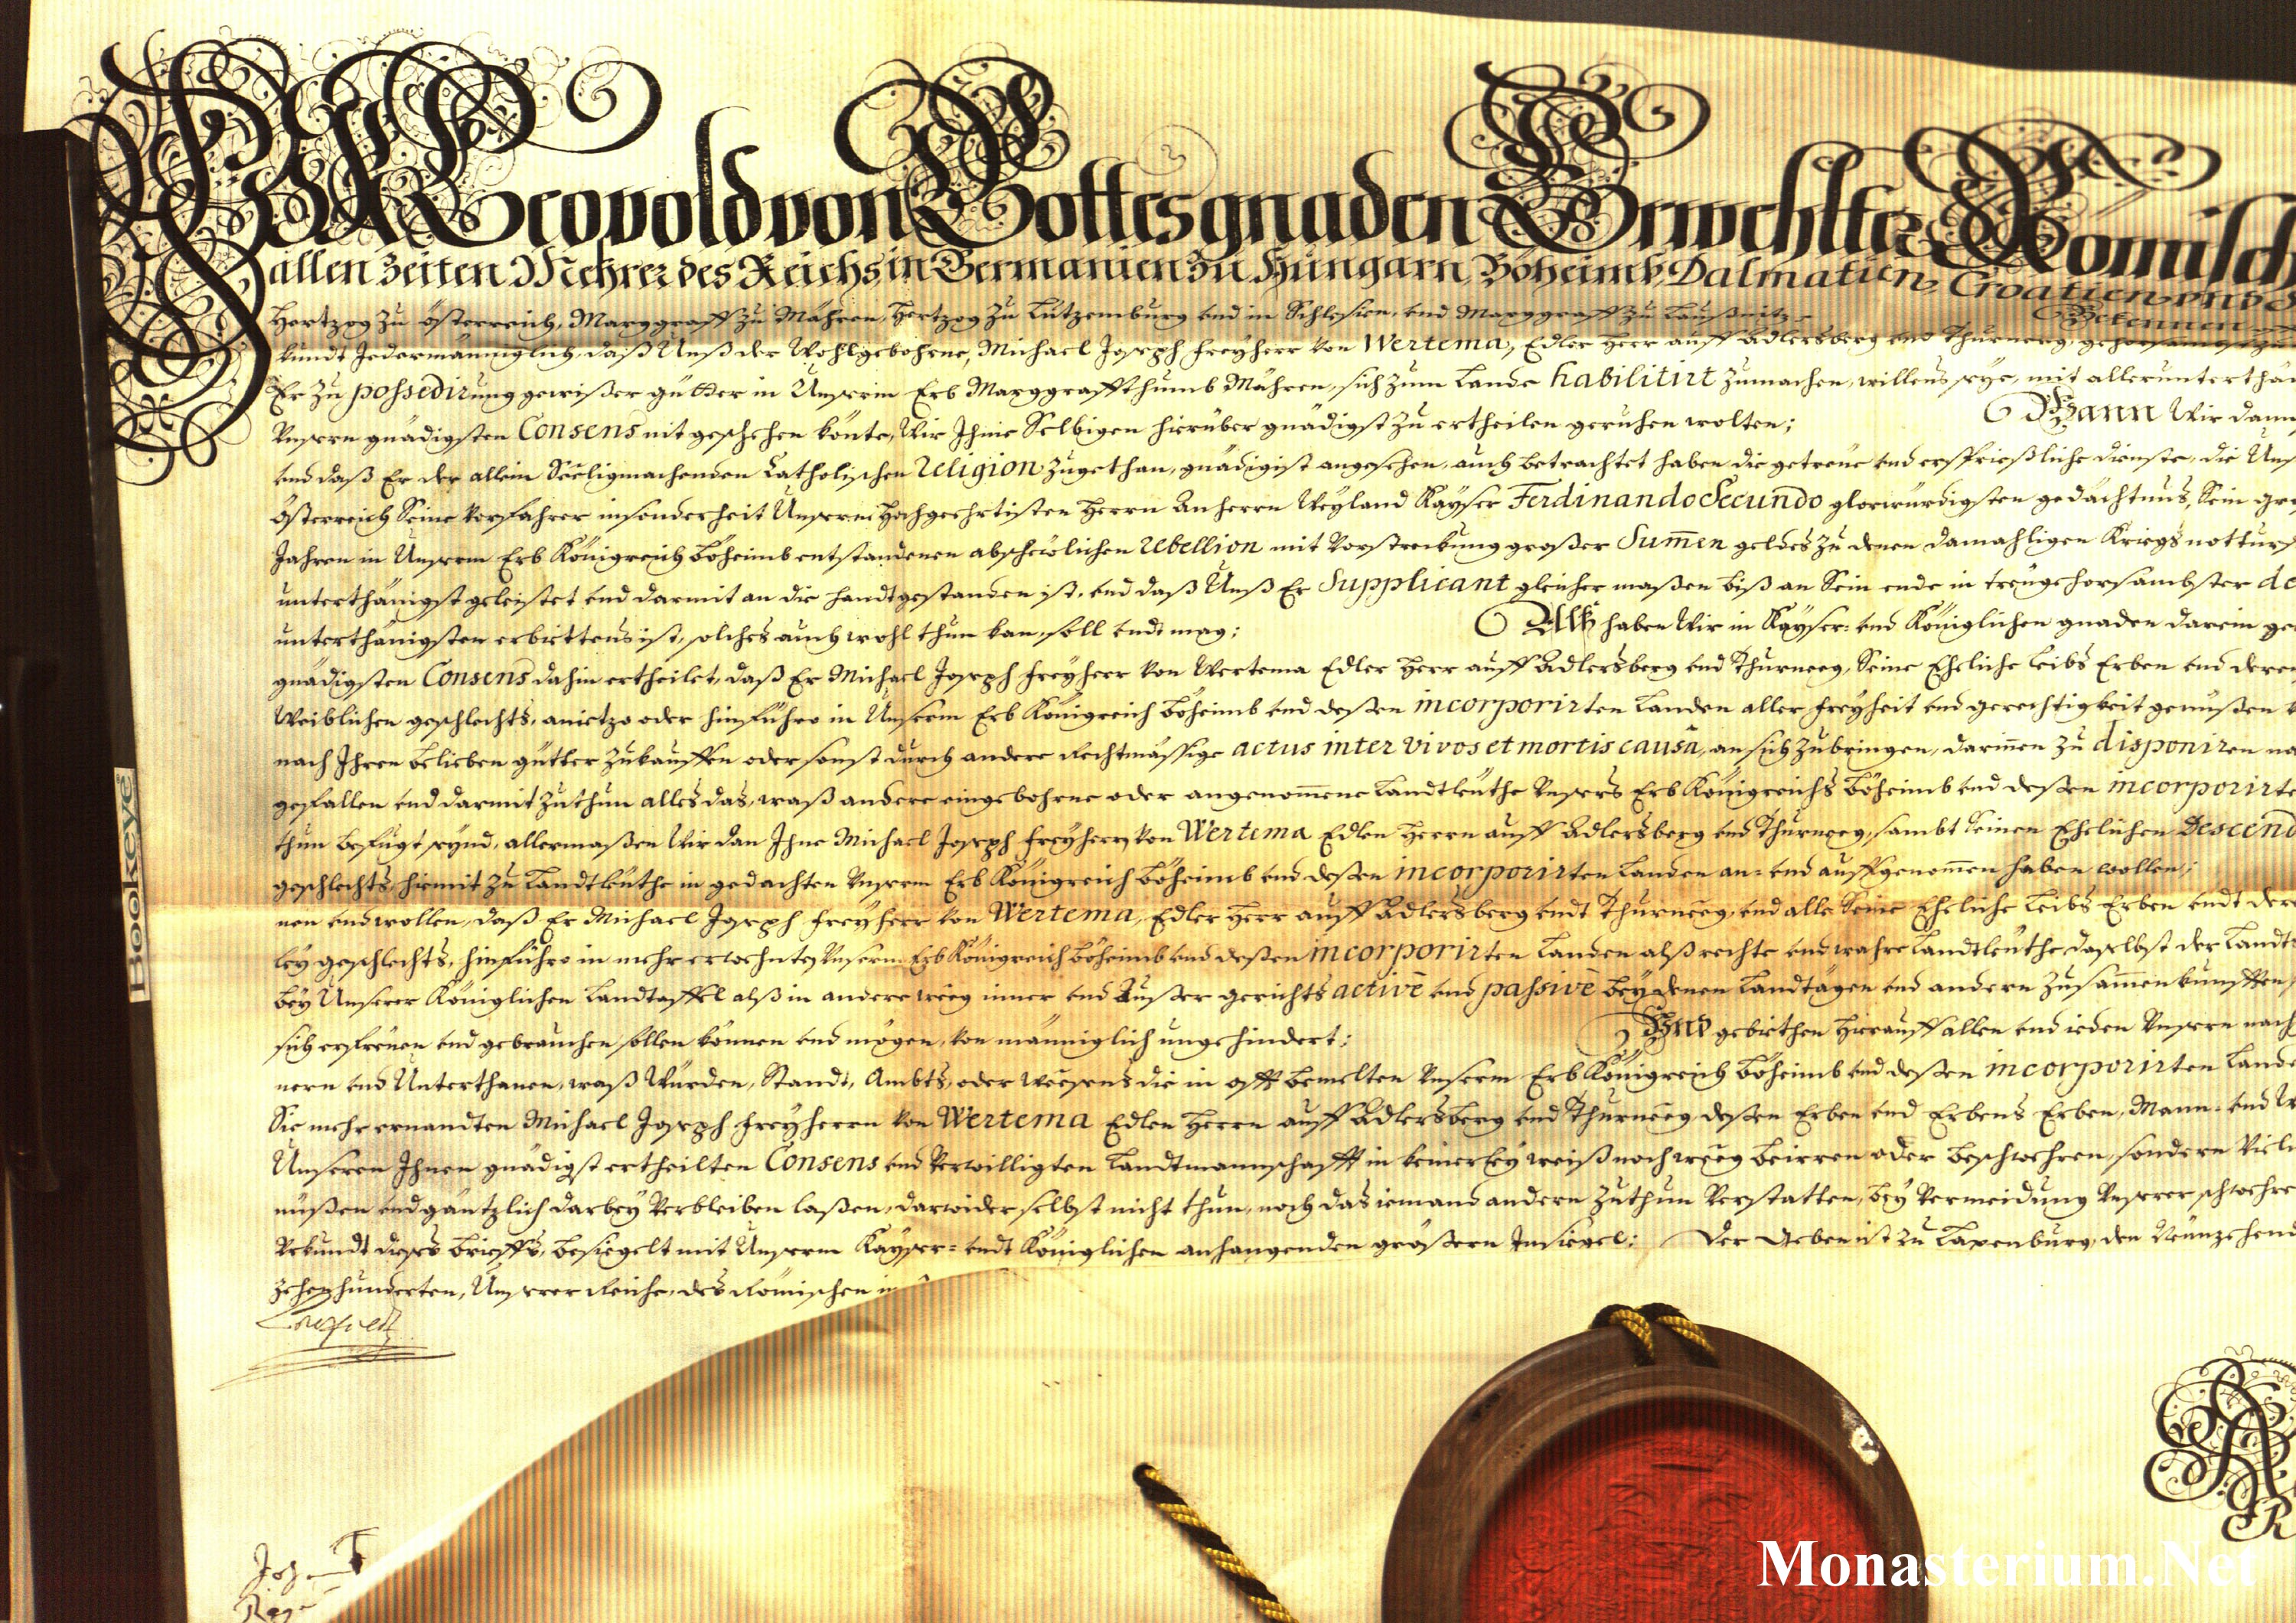 Wir Leopold von Gottes gnaden Erwehlter Römisch
allen Zeiten Mehrer des Reichs, in Germanien, zu Hungarn, Böheimb, Dalmatien, Croatien, unnd
Hertzog zu Österreich, Marggraff zu Mähren, Hertzog zu Lützemburg und in Schlesien, und Marggraff zu Laußnitz. Bekennen
kundt Jedermänniglich, daß Unß der Wohlgebohrne, Michael Joseph Freyherr von Wertema, Edler Herr auff Adlersberg und Thurnegg, gehorsambst
Er zu possedirung gewißer gütter in Unserm Erb Marggraffthumb Mähren, sich zum Lande habilitirt zumachen, willens seye, mit allerunterthä
Unsern gnädigsten Consens nit geschehen könte, Wir Ihme Selbigen hierüber gnädigst zu ertheilen geruhen wolten; Wann Wir dann
und daß Er der allein Seeligmachenden Catholischen Religion zugethan, gnädigist angesehen, auch betrachtet haben die getreue und ersprießliche dienste, die Uns
Österreich Seine Vorfahrer insonderheit Unserm Hochgeehrtisten Herrn Anherrn Weyland Kayser Ferdinando Secundo glorwürdigsten gedächtnus, Sein gr
Jahren in Unserm Erb Königreich Böheimb entstandenen abscheülichen Rebellion mit Vorstreckung großer Summen geldes zu denen damahligen Kriegs notturf
unterthänigst geleistet und darmit an die handt gestanden ist, und daß Unß Er Supplicant gleicher maßen biß an Sein ende in treügehorsambster de
unterthänigsten erbiettens ist, solches auch wohl thun kan, soll und mag; Alß haben Wir in Kayser: und Königlichen gnaden darein ge
gnädigsten Consens dahin ertheilet, daß Er Michael Joseph Freyherr von Wertema Edler Herr auff Adlersberg und Thurnegg, Seine Eheliche Leibs Erben und deren
Weiblichen geschlechts, anietzo oder hinführo in Unserm Erb Königreich Böheimb und deßen incorporirten Landen aller freyheit und gerechtigkeit genüßen
nach Ihren belieben gütter zukauffen oder sonst durch andere rechtmässige actus inter vivos et mortis causâ, an sich zubringen, darinnen zu disponiren na
gefallen und darmit zuthun alles das, waß andere eingebohrne oder angenommene Landtleüthe Unsers Erb Königreichs Böheimb und deßen incorporirte
thun befugt seynd, allermaßen Wir dan Ihne Michael Joseph Freyherrn von Wertema Edlen Herrn auff Adlersberg und Thurnegg, sambt seinen Ehelichen Descend
geschlechts hiemit zu Landtleüthe in gedachten Unserm Erb Königreich Böheimb und deßen incorporirten Landen an: und auffgenommen haben wollen;
nen und wollen, daß Er Michael Joseph Freyherr von Wertema, Edler Herr auff Adlersberg undt Thurnegg, und alle Seine Eheliche Leibs Erben undt dere
ley geschlechts, hinführo in mehr erwehnten Unserm Erb Königreich Böheimb und deßen incorporirten Landen alß rechte und wahre Landtleüthe daselbst der Landts
bey Unserer Königlichen Landtaffel alß in andere weeg inner und Außer gerichts activè und passivè bey denen Landtägen und andern Zusammenkunfften,
sich erfreüen und gebrauchen sollen können und mögen, von männiglich ungehindert; Und gebiethen hierauff allen und ieden Unsern nach
nern und Unterthanen, waß Würden, Standt, Ambts, oder Weesens die in offt bemelten Unserm Erb Königreich Böheimb und deßen incorporirten Lande
Sie mehr ernandten Michael Joseph Freyherrn von Wertema Edlen Herrn auff Adlersberg und Thurnegg deßen Erben und Erbens Erben, Mann: und W
Unseren Ihnen gnädigst ertheilten Consens und Verwilligten Landtmannschafft in keinerley weiß noch weeg beirren oder beschwehren, sondern Viel
nüßen und gäntzlich darbey Verbleiben laßen, darwider selbst nicht thun, noch das iemand andern zuthun Verstatten, bey Vermeidung Unserer schwehre
Urkundt dieses brieffs, besiegelt mit Unserm Kayser: undt Königlichen anhangenden größern Insiegel; Der Geben ist zu Laxenburg, den Neünzehend
zehenhunderten, Unserer Reiche, des Römischen in
Bookeye
Monasterium.Net